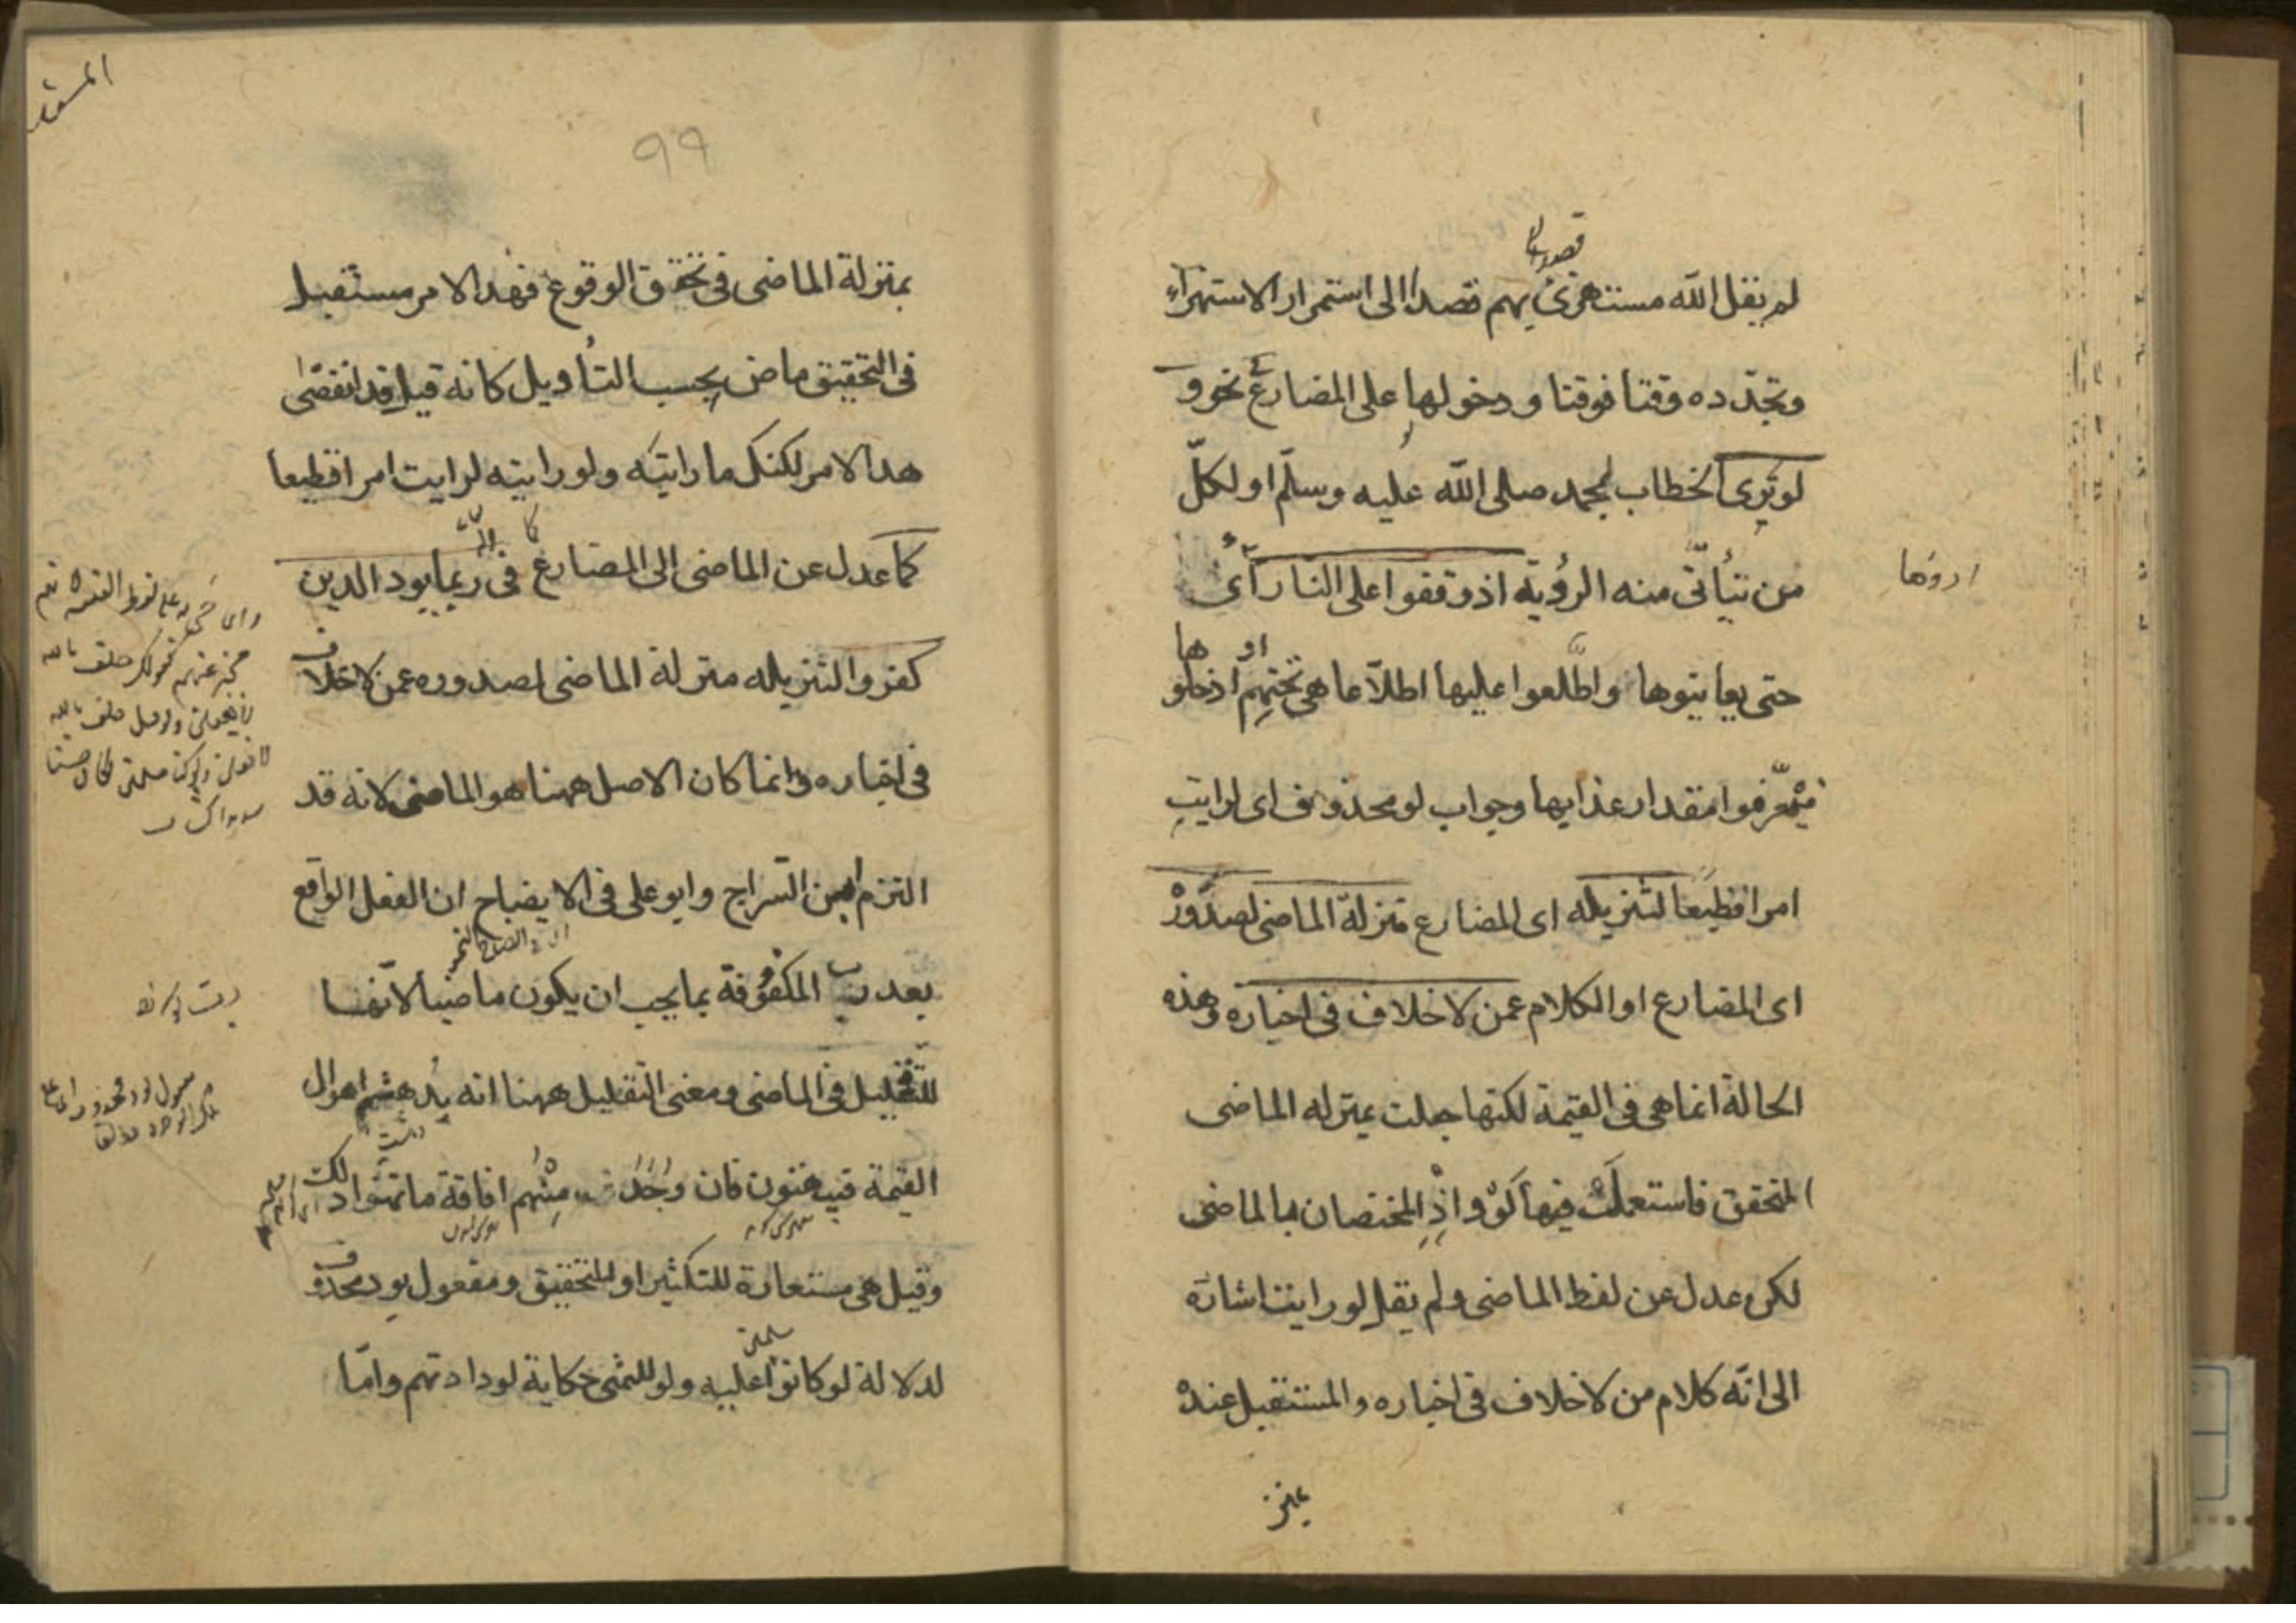 لم يقل الله مستهزئ بهم قصدا الى استمرار الاستهزاء
وتجدّده وقتا فوقتا ودخولها على المضارع نحو و
لو ترى الخطاب لمحمد صلى الله عليه وسلّم او لكلّ
من يتأتّى منه الرؤية اذ وقفوا على النار أى
اروها
حتى يعاينوها واطّلعوا عليها اطلاعا هى تحتهم او ادخلوها
فيتعرّفوا مقدار عذابها وجواب لو محذوف اى لرايت
امرا فظيعا لتنزيله اى المضارع منزلة الماضى لصدوره
اى المضارع او الكلام عمن لا خلاف فى اخباره وهذه
الحالة انما هى فى القيمة لكنها جعلت بمنزلة الماضى
المتحقق فاستعملت فيها لو واذ المختصان بالماضى
لكن عدل عن لفظ الماضى ولم يقل لو رايت اشارة
الى انّه كلام من لا خلاف فى اخباره والمستقبل عنده
بمنز
99
بمنزلة الماضى فى تحقق الوقوع فهذا الامر مستقبل
فى التحقيق ماض بحسب التأويل كانه قيل قد انقضى
هذا الامر لكنك ما رايته ولو رايته لرايت امرا فظيعا
كما عدل عن الماضى الى المضارع فى ربما يود الذين
كفروا لتنزيله منزلة الماضى لصدوره عمن لا خلاف
فى اخباره وانما كان الاصل ههنا هو الماضى لانه قد
التزم ابن السراج وابو على فى الايضاح ان الفعل الواقع
بعد رب المكفوفة بما يجب ان يكون ماضيا لانها
للتقليل فى الماضى ومعنى التقليل ههنا انه يدهشهم اهوال
القيمة فيبهتون فان وجدت منهم افاقة ما تمنوا ذلك
وقيل هى مستعارة للتكثير او للتحقيق ومفعول يود محذوف
لدلالة لو كانوا عليه ولو للتمنى حكاية لودادتهم وامّا